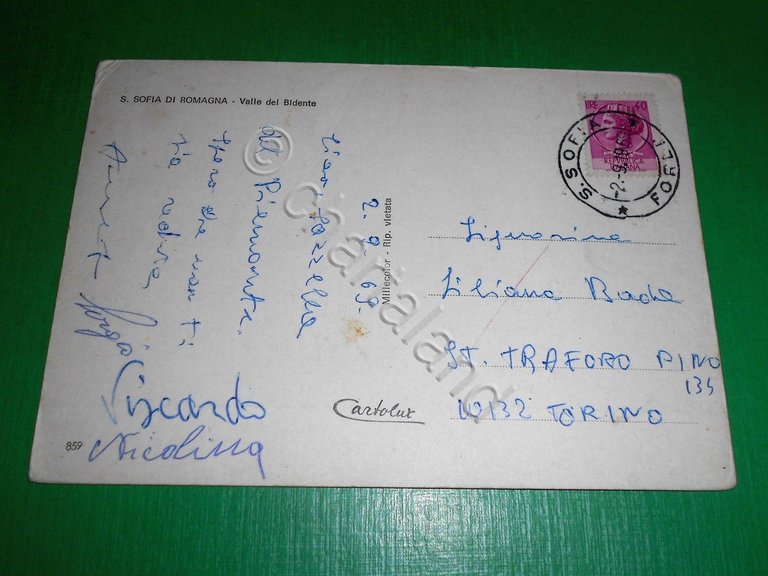 S. SOFIA DI ROMAGNA - Valle del Bidente
2.9.69.
Ciao
del Piemonte.
Spero che non ti
sia
Sergio
Viscardo
Nicolina
859
Millecolor - Rip. vietata
Cartolux
LIRE 40
REPUBBLICA
ITALIANA
S. SOFIA
FORLI
Signorina
Liliana
ST. TRAFORO PINO
135
10132 TORINO
© chartaland